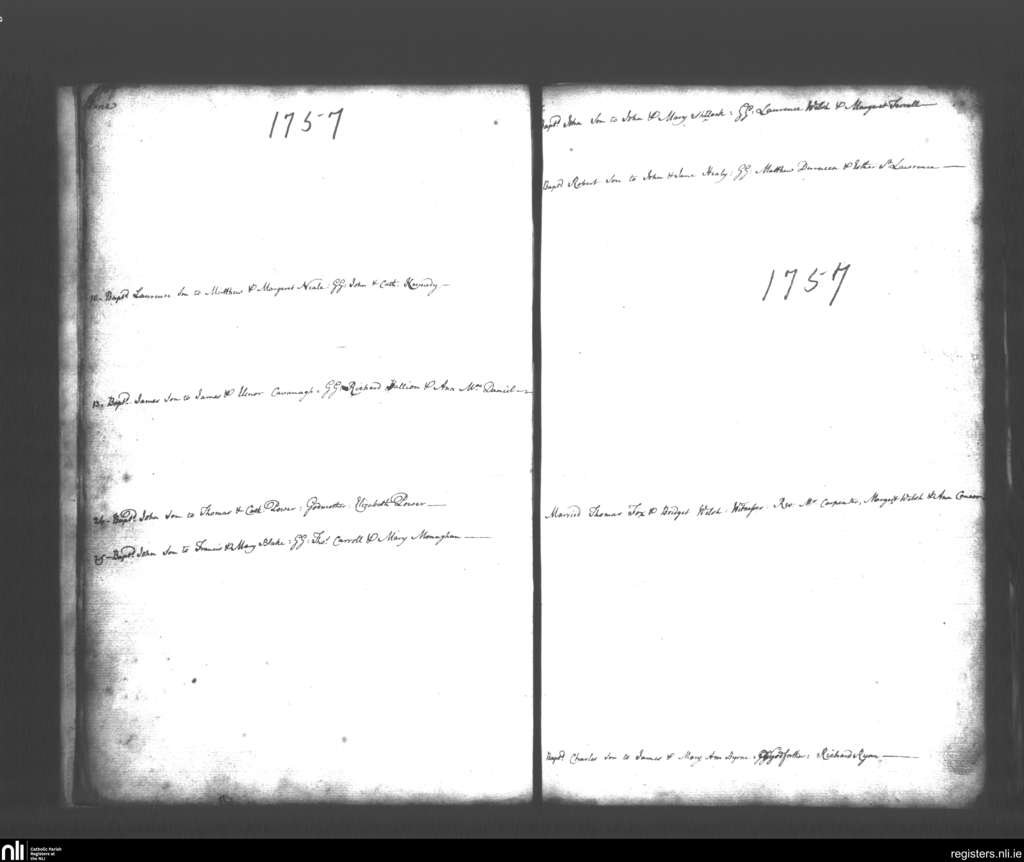 June
1757
10 - Bapd. Laurence Son to Matthew & Margaret Neale: GG: John & Cath: Kennedy -
13 - Bapd. James Son to James & Elinor Cavanagh: GG: Richard & Ann McDaniel -
24 - Bapd. John Son to Thomas & Cath Power: Godmother: Elizabeth Power -
25 - Bapd. John Son to Francis & Mary Blake: GG: Thos. Carroll & Mary Monaghan -
Bapd. John Son to John & Mary: GG: Laurence Welsh & Margaret Farrell -
Bapd Robert Son to John & Jane Healy: GG: Matthew & Esther St. Lawrence -
1757
Married Thomas Fox & Bridget Welsh: Witnesses: Rev. Mr. Carpenter, Margett Welsh & Ann Connor
Bapd Charles Son to James & Mary Ann Byrne: Godfather: Richard Ryan -
nli
Catholic Parish
Registers at
the NLI
registers.nli.ie